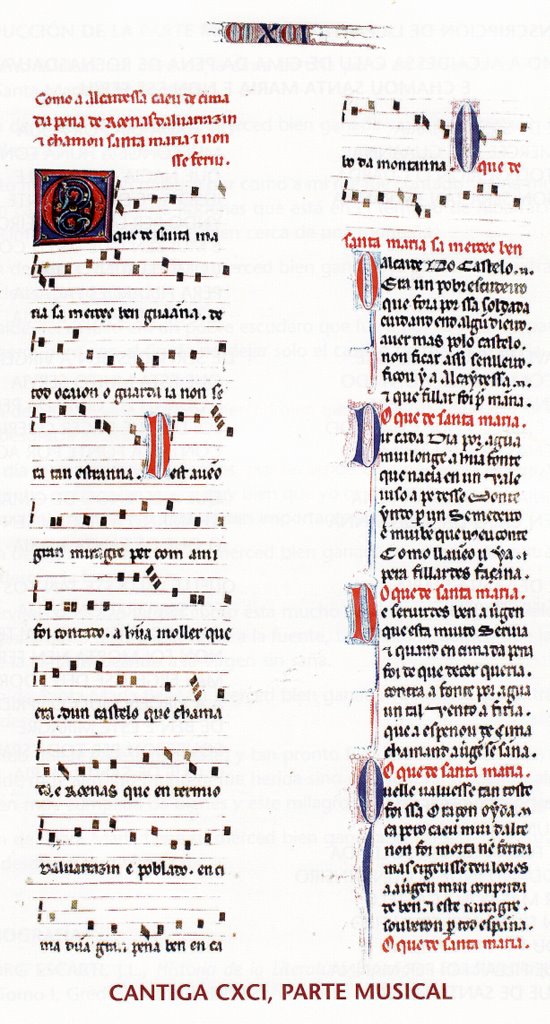 CXCI
Como a Alcaydessa caeu de cima
da pena de Roenas dalvarrazin
τ chamou santa maria τ non
sse feriu.
O que de santa ma
ria sa merçee ben guaanna. de
tod ocaijon o guarda ia non se
ra tan estranna. D est aveo
gran miragre per com ami
foi contado. a hũa moller que
era dun castelo que chama
da e Roenas que en termio
Dalvarrazin e poblado. en ci
ma dũa gran pena ben en ca
bo da montanna. O que de
santa maria sa merçee ben
alcaide do Castelo.
Era un pobr escudeiro
que fora por ssa soldada
cuidando end algũ dieiro
aver mas polo castelo
non ficar assi senlleiro
ficou y a Alcaydessa.
τ que fillar foi p̃ mania.
O que de santa maria.
U ir cada dia por agua
mui longe a hũa fonte
que nacia en un vale
e muit be que vos eu conte
Com o llaveo u ya
O que de santa maria.
E sennores ben a uirgen
que esta muito servia
τ quand en cima da pena
foi de que decer queria
contra a fonte por agua
un tal vento a feria.
que a espenou de cima
chamando a uirgẽ se sana.
O que de santa maria.
velle valvesse tan toste
foi ssa oraçon oyda.
ca pero caeu mui d alte
non foi morta nẽ ferida
mas ergeusse deu loores
a uirgen mui conprida
de ben. τ este miragre.
souberon p̃ tod españa.
O que de santa maria.
CANTIGA CXCI, PARTE MUSICAL